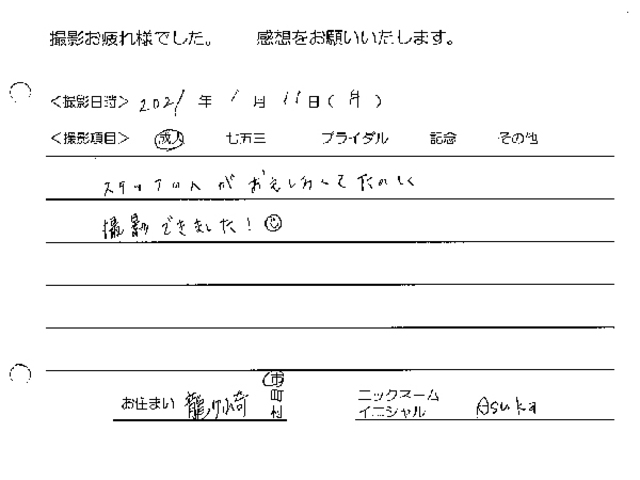 撮影お疲れ様でした。 感想をお願いいたします。
<撮影日時> 2021年 1月 11日(月)
<撮影項目> 成人 七五三 ブライダル 記念 その他
スタッフの人が おもしろくてたのしく
撮影できました!☺
お住まい 龍ケ崎 市 町 村
ニックネーム イニシャル Asuka